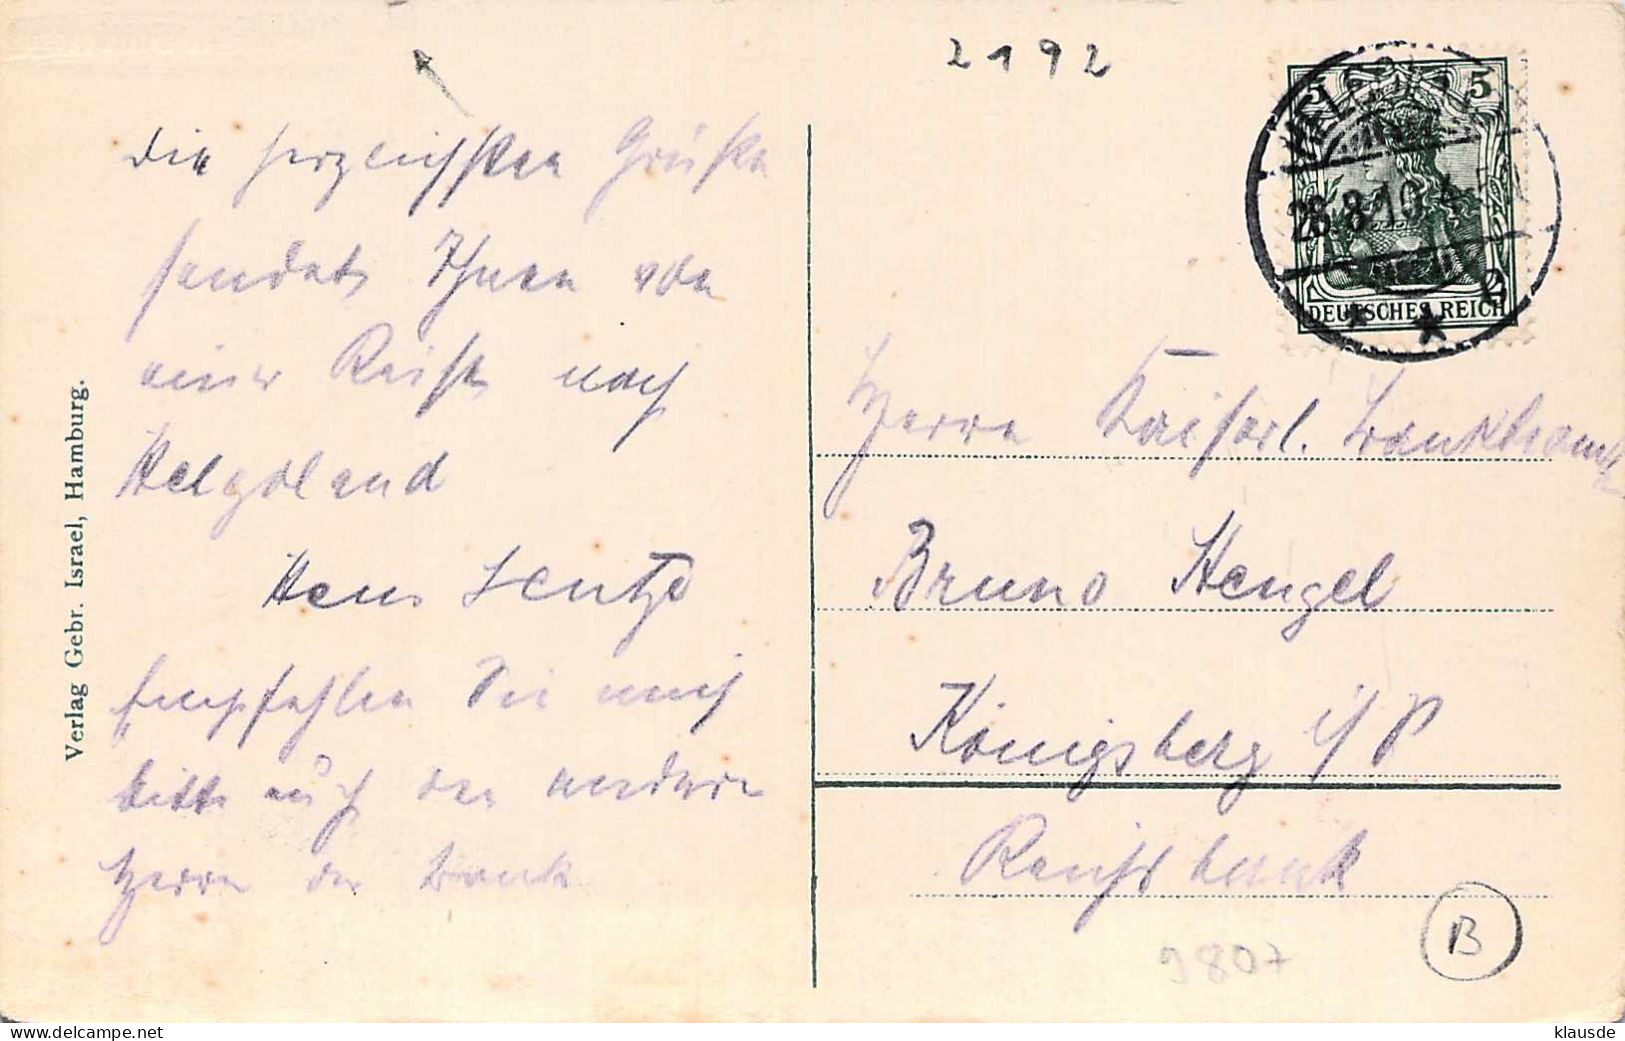 2192
Die herzlichsten Grüße
sendet Ihnen von
einer Reise nach
Helgoland
Hans Lentze
Empfehlen Sie mich
bitte auch den anderen
Herren der Bank
Verlag Gebr. Israel, Hamburg.
5 5
26.8.10. 4-5N
DEUTSCHES REICH
Herrn Kaiserl. Bankbeamt
Bruno Hengel
Königsberg i/P
Reichsbank
B
9807
klausde